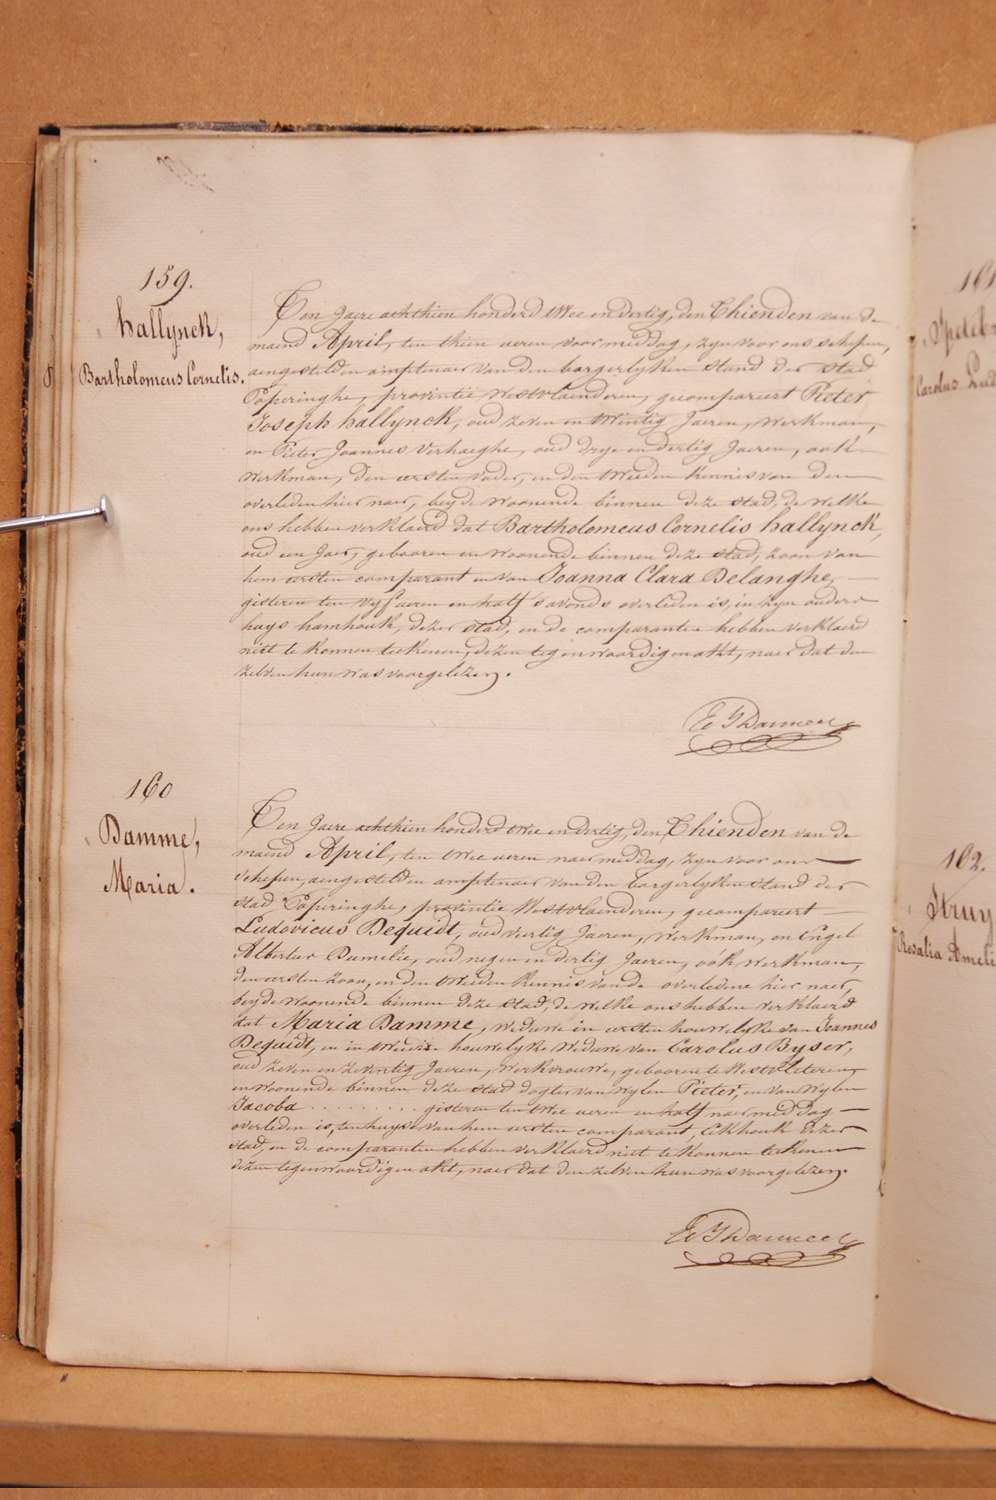 159.
hallynck,
Bartholomeus Cornelis.
8
Ten Jaere achthien honderd twee en dertig, den thienden van de
maend April, ten thien ueren voormiddag, zyn voor ons schepen,
aengestelden amptenaer van den borgerlyken stand der stad
Poperinghe, provintie Westvlaenderen, gecompareert Pieter
Joseph hallynck, oud zeven en twintig Jaeren, werkman,
en Pieter Joannes Verhaeghe, oud drye en dertig Jaeren, ook
werkman, den eersten vader, en den tweeden kennis van den
overleden hier naer, beyde woonende binnen deze stad, de welke
ons hebben verklaerd dat Bartholomeus Cornelis hallynck,
oud een Jaer, gebooren en woonende binnen deze stad, zoon van
hem eersten comparant en van Joanna Clara Delanghe,
gisteren ten vyf ueren en half 's avonds overleden is, in zyn ouders
huys hamhouk, dezer stad, en de comparanten hebben verklaerd
niet te konnen teekenen, dezen tegenwoordigen akt, naer dat den
zelven hun was voorgelezen.
160
Damme,
Maria.
Ten Jaere achthien honderd twee en dertig, den thienden van de
maend April, ten twee ueren naermiddag, zyn voor ons
schepen, aengestelden amptenaer van den borgerlyken stand der
stad Poperinghe, provintie Westvlaenderen, gecompareert
Ludovicus Dequidt, oud veertig Jaeren, werkman, en Engel
Albertus Dumelie, oud negen en dertig Jaeren, ook werkman,
den eersten zoon, en den tweeden kennis van de overledene hier naer,
beyde woonende binnen deze stad, de welke ons hebben verklaerd
dat Maria Damme, weduwe in eersten houwelyke van Joannes
Dequidt, en in tweeden houwelyke weduwe van Carolus Byser,
oud zeven en zeventig Jaeren, werkvrouwe, geboorene te Westvleteren,
en woonende binnen deze stad dogter van wylen Pieter, en van wylen
Jacoba . . . . . . . . . gisteren ten twee ueren en half naermiddag
overleden is, ten huyse van hem eersten comparant, Eekhouk dezer
stad, en de comparanten hebben verklaerd niet te konnen teekenen
dezen tegenwoordigen akt, naer dat den zelven hun was voorgelezen.
161
Carolus Lud
162.
Struy
Rosalia Ameli